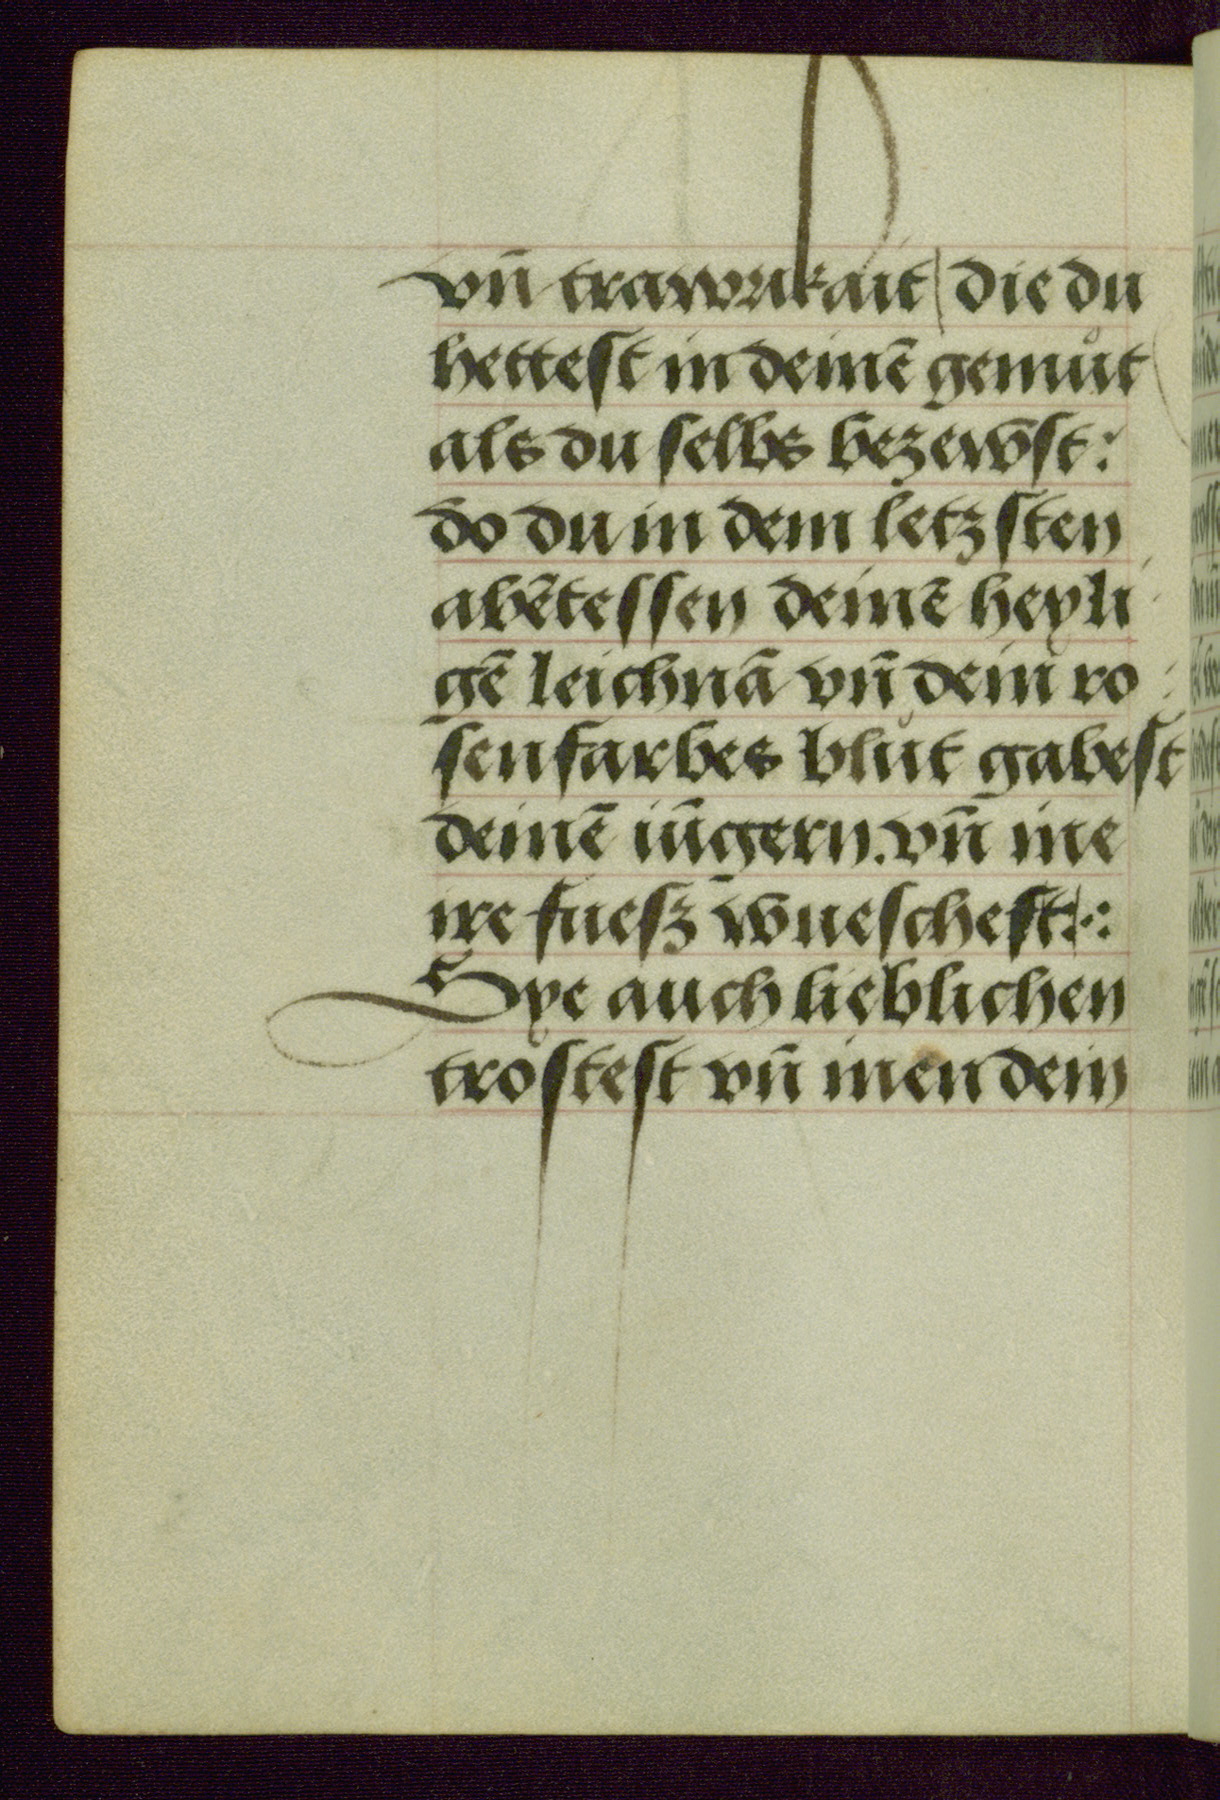 vñ trawrikait die du
hettest in deinē gemůt
als du selbs bezewgst:
do du in dem letzsten
abētessen deinē heyli
gē leichnā vñ dein ro
senfarbes blůt gabest
deinē iūgern. vñ ine
ire fuesz wueschest:
Sye auch lieblichen
trostest vñ inen dein